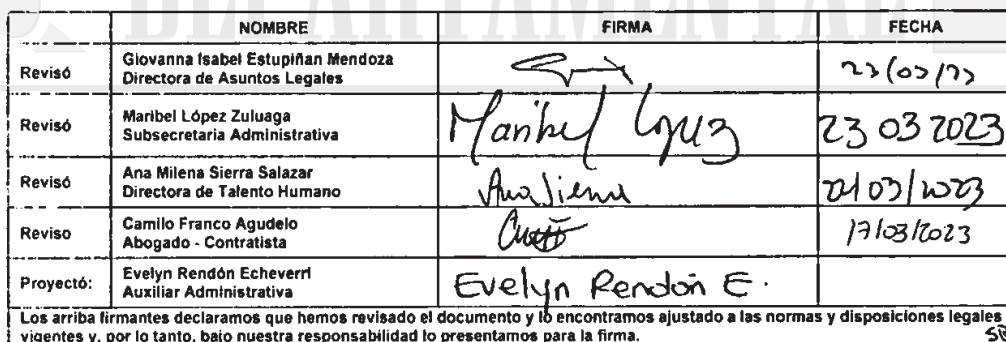 DEPARTAMENTAL
NOMBRE FIRMA FECHA
Revisó Giovanna Isabel Estupiñan Mendoza
Directora de Asuntos Legales
23/03/23
Revisó Maribel López Zuluaga
Subsecretaria Administrativa
Maribel López 23 03 2023
Revisó Ana Milena Sierra Salazar
Directora de Talento Humano
Ana Sierra 21/03/2023
Reviso Camilo Franco Agudelo
Abogado - Contratista
17/03/2023
Proyectó: Evelyn Rendón Echeverri
Auxiliar Administrativa
Evelyn Rendón E.
Los arriba firmantes declaramos que hemos revisado el documento y lo encontramos ajustado a las normas y disposiciones legales
vigentes y, por lo tanto, bajo nuestra responsabilidad lo presentamos para la firma.